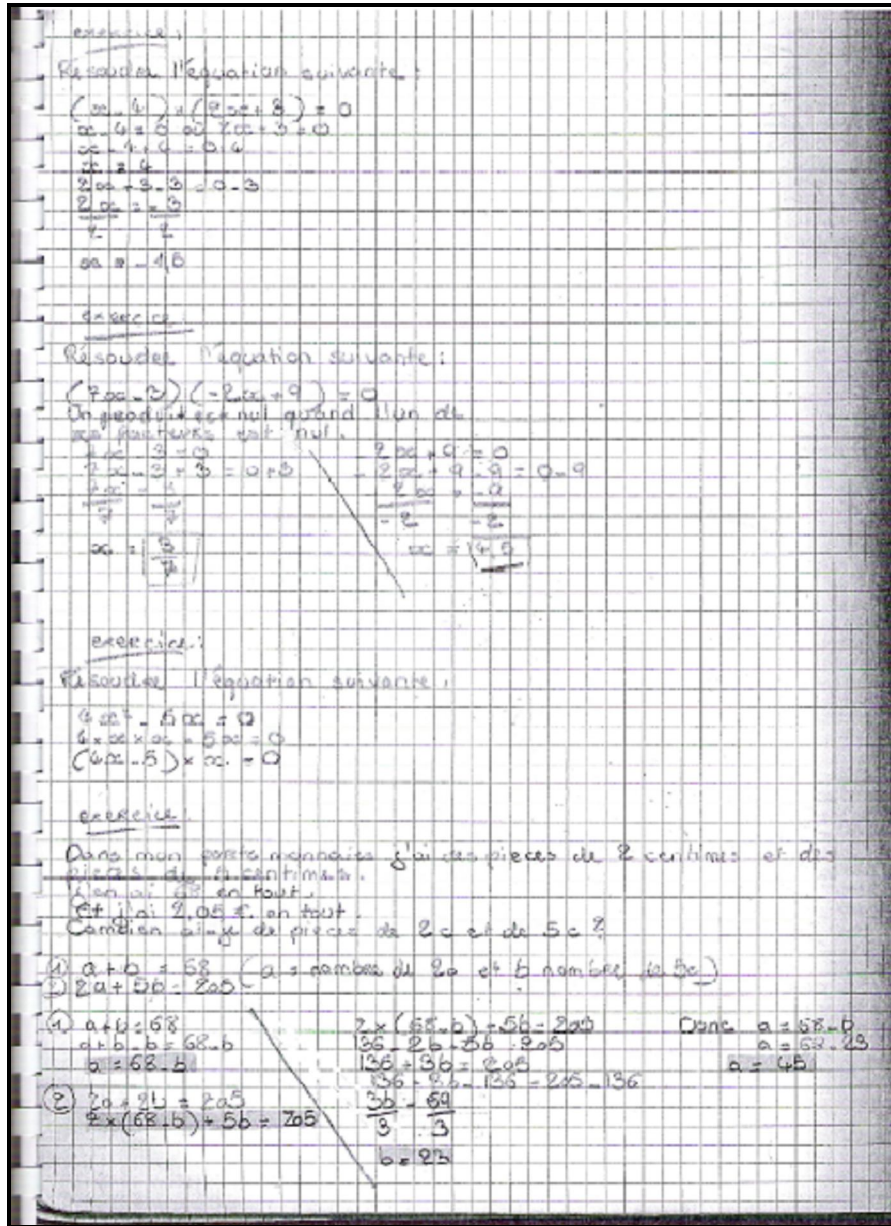 exercice :
Résoudre l'équation suivante :
(x - 4) × (2x + 3) = 0
x - 4 = 0 où 2x + 3 = 0
x - 4 + 4 = 0 + 4
x = 4
2x + 3 - 3 = 0 - 3
2x = -3
2 2
x = -1,5
exercice :
Résoudre l'équation suivante :
(7x - 3) (-2x + 9) = 0
Un produit est nul quand l'un de
ses facteurs est nul.
7x - 3 = 0
7x - 3 + 3 = 0 + 3
7x = 3
7 7
x = 3/7
-2x + 9 = 0
-2x + 9 - 9 = 0 - 9
-2x = -9
-2 -2
x = 4,5
exercice :
Résoudre l'équation suivante :
4x² - 5x = 0
4 × x × x - 5x = 0
(4x - 5) × x = 0
exercice :
Dans mon porte monnaie j'ai des pièces de 2 centimes et des
pièces de centimes.
J'en ai 68 en tout.
Et j'ai 2,05 €. en tout.
Combien ai-je de pièces de 2c et de 5c ?
① a + b = 68 (a = nombre de 2c et b nombre de 5c)
② 2a + 5b = 205
① a + b = 68
a + b - b = 68 - b
a = 68 - b
② 2a + 2b = 205
2 × (68 - b) + 5b = 205
2 × (68 - b) + 5b = 205
136 - 2b + 5b = 205
136 + 3b = 205
136 + 3b - 136 = 205 - 136
3b = 69
3 3
b = 23
Donc a = 68 - b
a = 68 - 23
a = 45